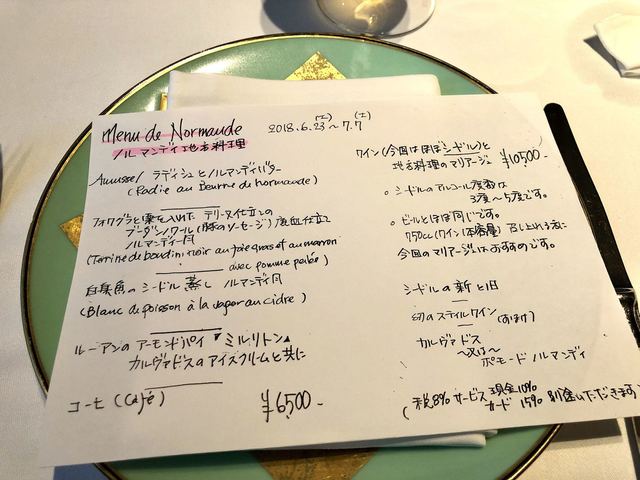 Menu de Normande
2018.6.23(土)～7.7(土)
ノルマンディ地方料理
Amusse/ ラディシュとノルマンディバター
(Radie au Beurre de Normande)
フォワグラと栗を入れた テリーヌ仕立の
ブーダンノワール(豚のソーセージ)
ノルマンディー風
(Terrine de boudin noir au foie gras et au marron
avec pomme poilée)
白身魚のシードル蒸し ノルマンディ風
(Blanc de poisson à la vapeur au cidre)
ルーアンのアーモンドパイ ▼ミルリトン▲
カルヴァドスのアイスクリームと共に
コーヒ (Café)
¥6500-
ワイン(今回はほぼシードル)と
地方料理のマリアージュ ¥10500-
○ シードルのアルコール度数は
3度～5度です。
○ ビールとほぼ同じです。
750cc(ワイン1本容量) 召し上れる方に
今回のマリアージュはおすすめです。
シードルの新と旧
幻のスティルワイン
カルヴァドス
～又は～
ポモードノルマンディ
(税8% サービス 現金10%
カード 15% 別途いただきます